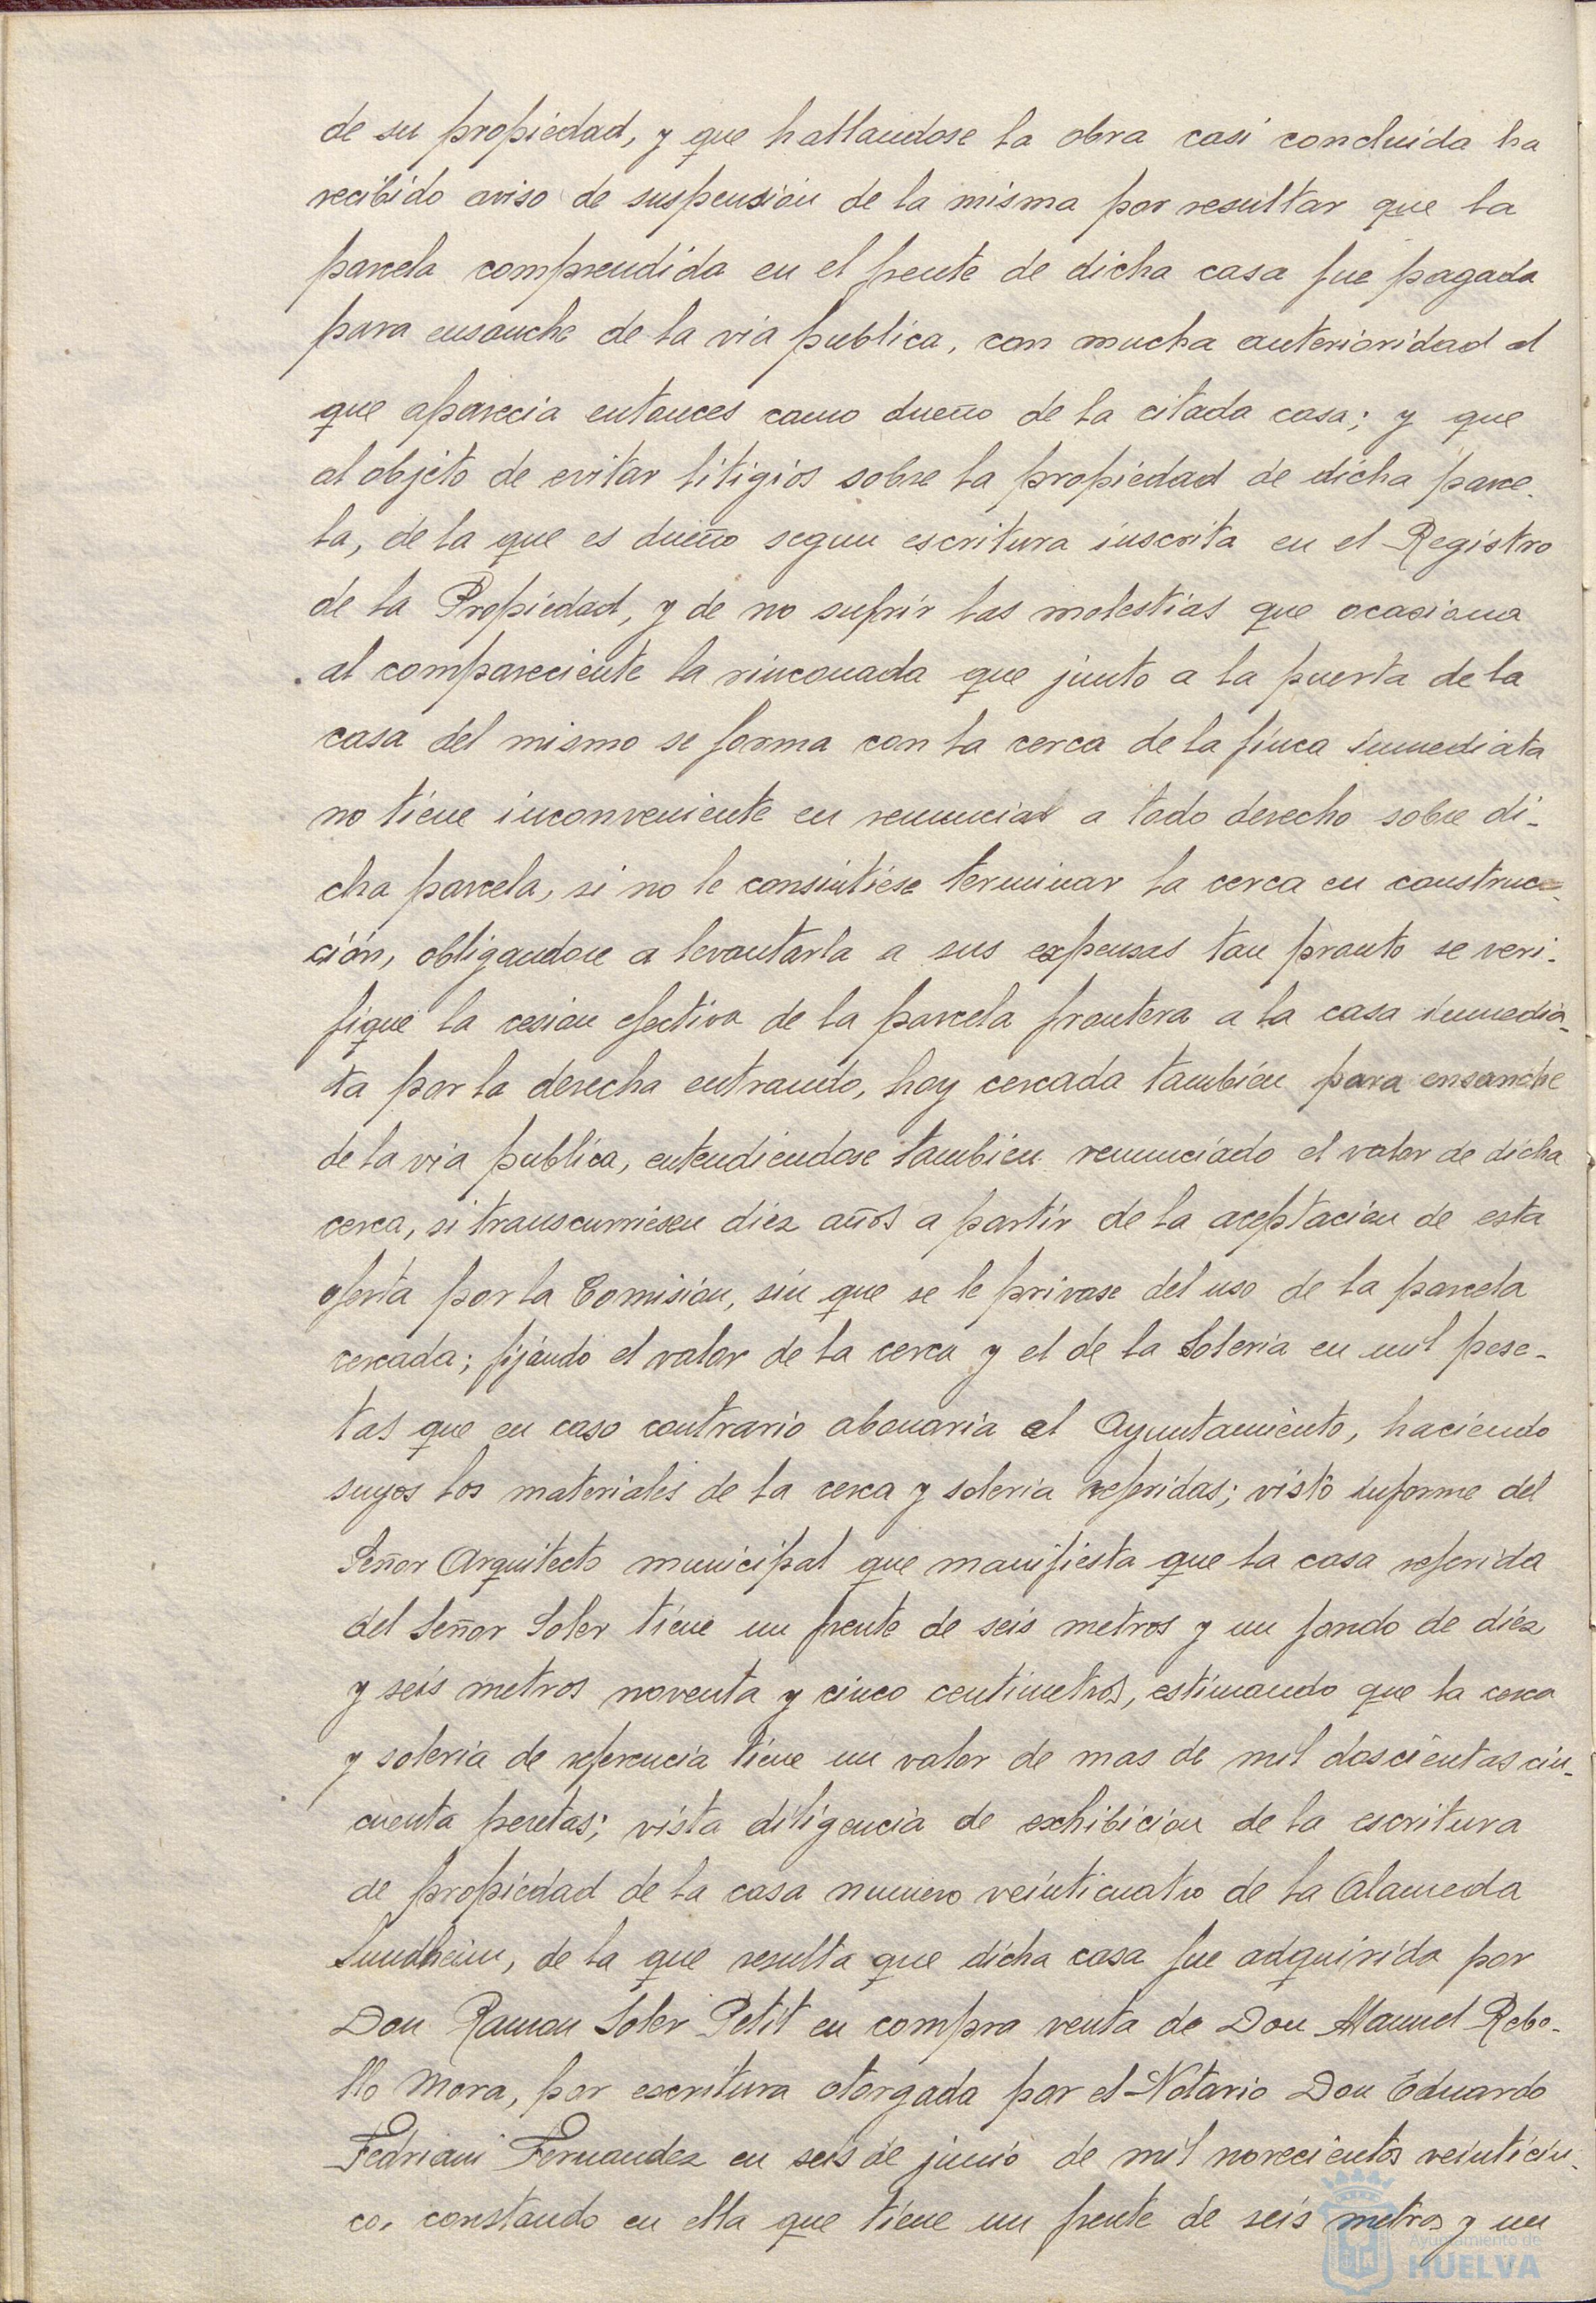 de su propiedad, y que hallandose la obra casi concluida ha
recibido aviso de suspension de la misma por resultar que la
parcela comprendida en el frente de dicha casa fue pagada
para ensanche de la via publica, con mucha anterioridad al
que aparecia entonces como dueño de la citada casa; y que
al objeto de evitar litigios sobre la propiedad de dicha parce-
la, de la que es dueño segun escritura inscrita en el Registro
de la Propiedad, y de no sufrir las molestias que ocasiona
al compareciente la rinconada que junto a la puerta de la
casa del mismo se forma con la cerca de la finca inmediata
no tiene inconveniente en renunciar a todo derecho sobre di-
cha parcela, si no le consintiese terminar la cerca en construc-
ción, obligandose a levantarla a sus expensas tan pronto se veri-
fique la cesion efectiva de la parcela frontera a la casa inmedia-
ta por la derecha entrando, hoy cercada tambien para ensanche
de la via publica, entendiendose tambien renunciado el valor de dicha
cerca, si transcurriesen diez años a partir de la aceptacion de esta
oferta por la Comision, sin que se le privase del uso de la parcela
cercada; fijando el valor de la cerca y el de la Soleria en mil pese-
tas que en caso contrario abonaria el Ayuntamiento, haciendo
suyos los materiales de la cerca y soleria referidas; visto informe del
Señor Arquitecto municipal que manifiesta que la casa referida
del Señor Soler tiene un frente de seis metros y un fondo de diez
y seis metros noventa y cinco centimetros, estimando que la cerca
y soleria de referencia tiene un valor de mas de mil doscientas cin-
cuenta pesetas; vista diligencia de exhibicion de la escritura
de propiedad de la casa numero veinticuatro de la Alameda
Sundheim, de la que resulta que dicha casa fue adquirida por
Don Ramon Soler Petit en compra venta de Don Manuel Rebo-
llo Mora, por escritura otorgada por el Notario Don Eduardo
Fedriani Fernandez en seis de junio de mil novecientos veinticin-
co, constando en ella que tiene un frente de seis metros y un
Ayuntamiento de
HUELVA